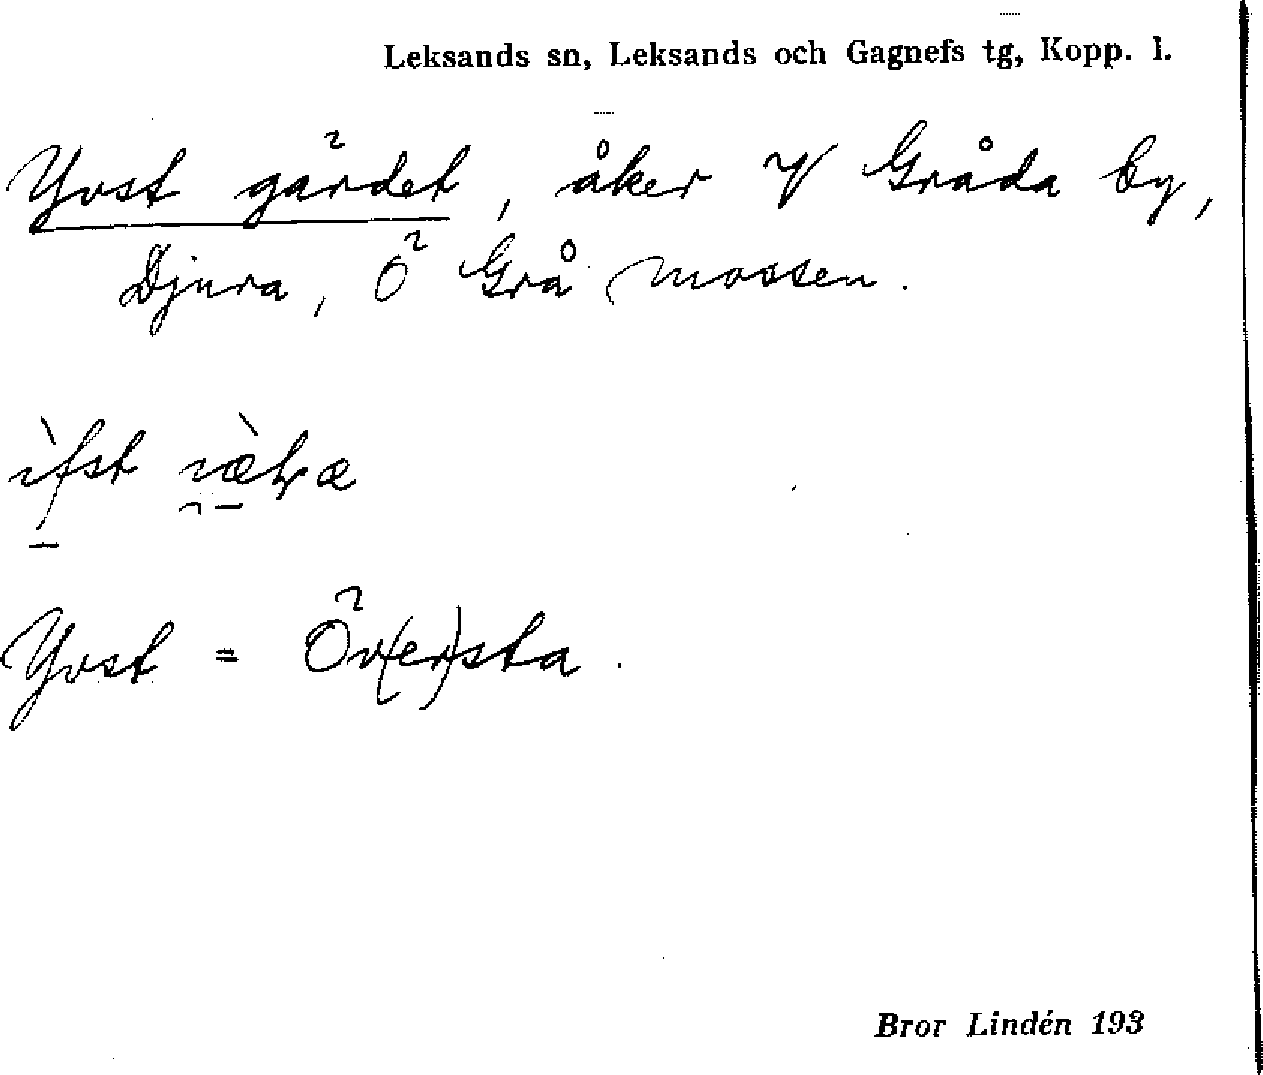 Leksands sn, Leksands och Gagnefs tg, Kopp. l.
Yvst gärdet, åker V Gråda by,
Djura, Ö Grå mossen.
ìfst
Yvst = Öv(er)sta.
Bror Lindén 193